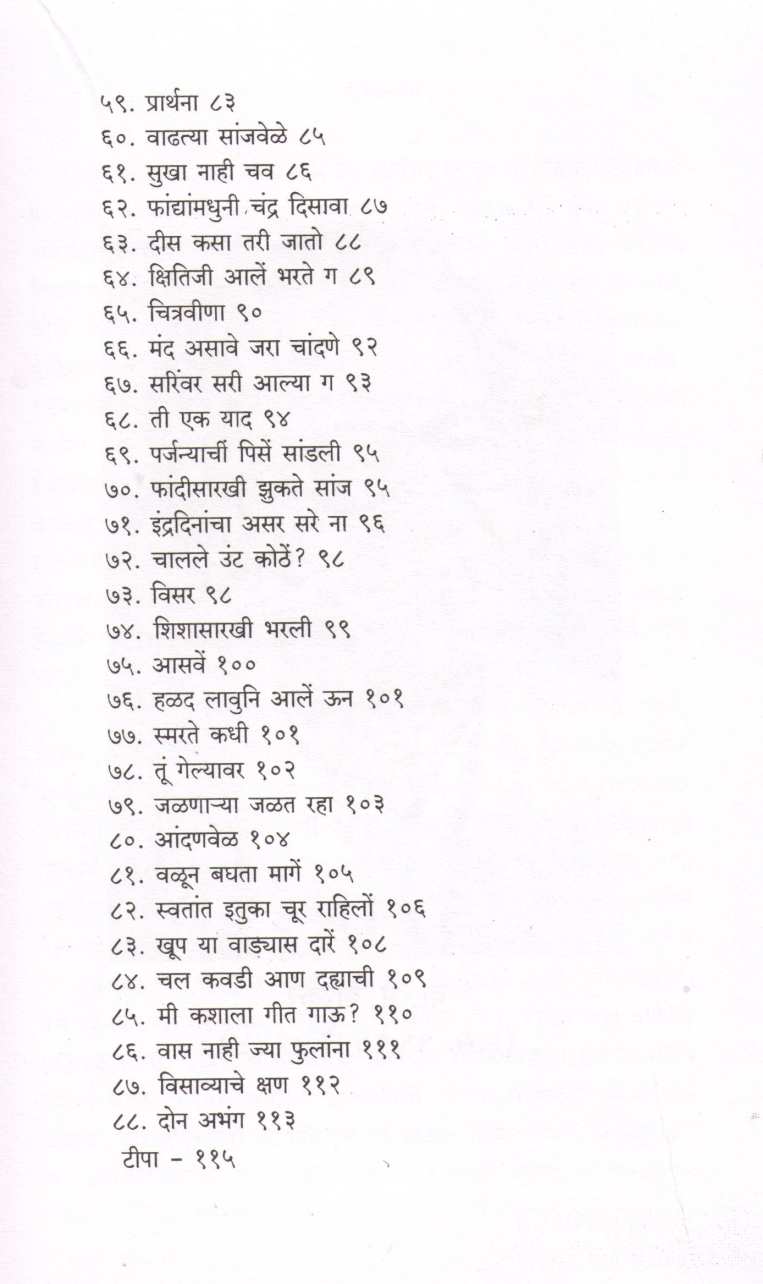 ५९. प्रार्थना ८३
६०. वाढत्या सांजवेळे ८५
६१. सुखा नाही चव ८६
६२. फांद्यांमधुनी चंद्र दिसावा ८७
६३. दीस कसा तरी जातो ८८
६४. क्षितिजी आलें भरते ग ८९
६५. चित्रवीणा ९०
६६. मंद असावे जरा चांदणे ९२
६७. सरिंवर सरी आल्या ग ९३
६८. ती एक याद ९४
६९. पर्जन्याचीं पिसें सांडली ९५
७०. फांदीसारखी झुकते सांज ९५
७१. इंद्रदिनांचा असर सरे ना ९६
७२. चालले उंट कोठें? ९८
७३. विसर ९८
७४. शिशासारखी भरली ९९
७५. आसवें १००
७६. हळद लावुनि आलें ऊन १०१
७७. स्मरते कधी १०१
७८. तूं गेल्यावर १०२
७९. जळणाऱ्या जळत रहा १०३
८०. आंदणवेळ १०४
८१. वळून बघता मागें १०५
८२. स्वतांत इतुका चूर राहिलों १०६
८३. खूप या वाड्यास दारें १०८
८४. चल कवडी आण दह्याची १०९
८५. मी कशाला गीत गाऊ? ११०
८६. वास नाही ज्या फुलांना १११
८७. विसाव्याचे क्षण ११२
८८. दोन अभंग ११३
टीपा - ११५